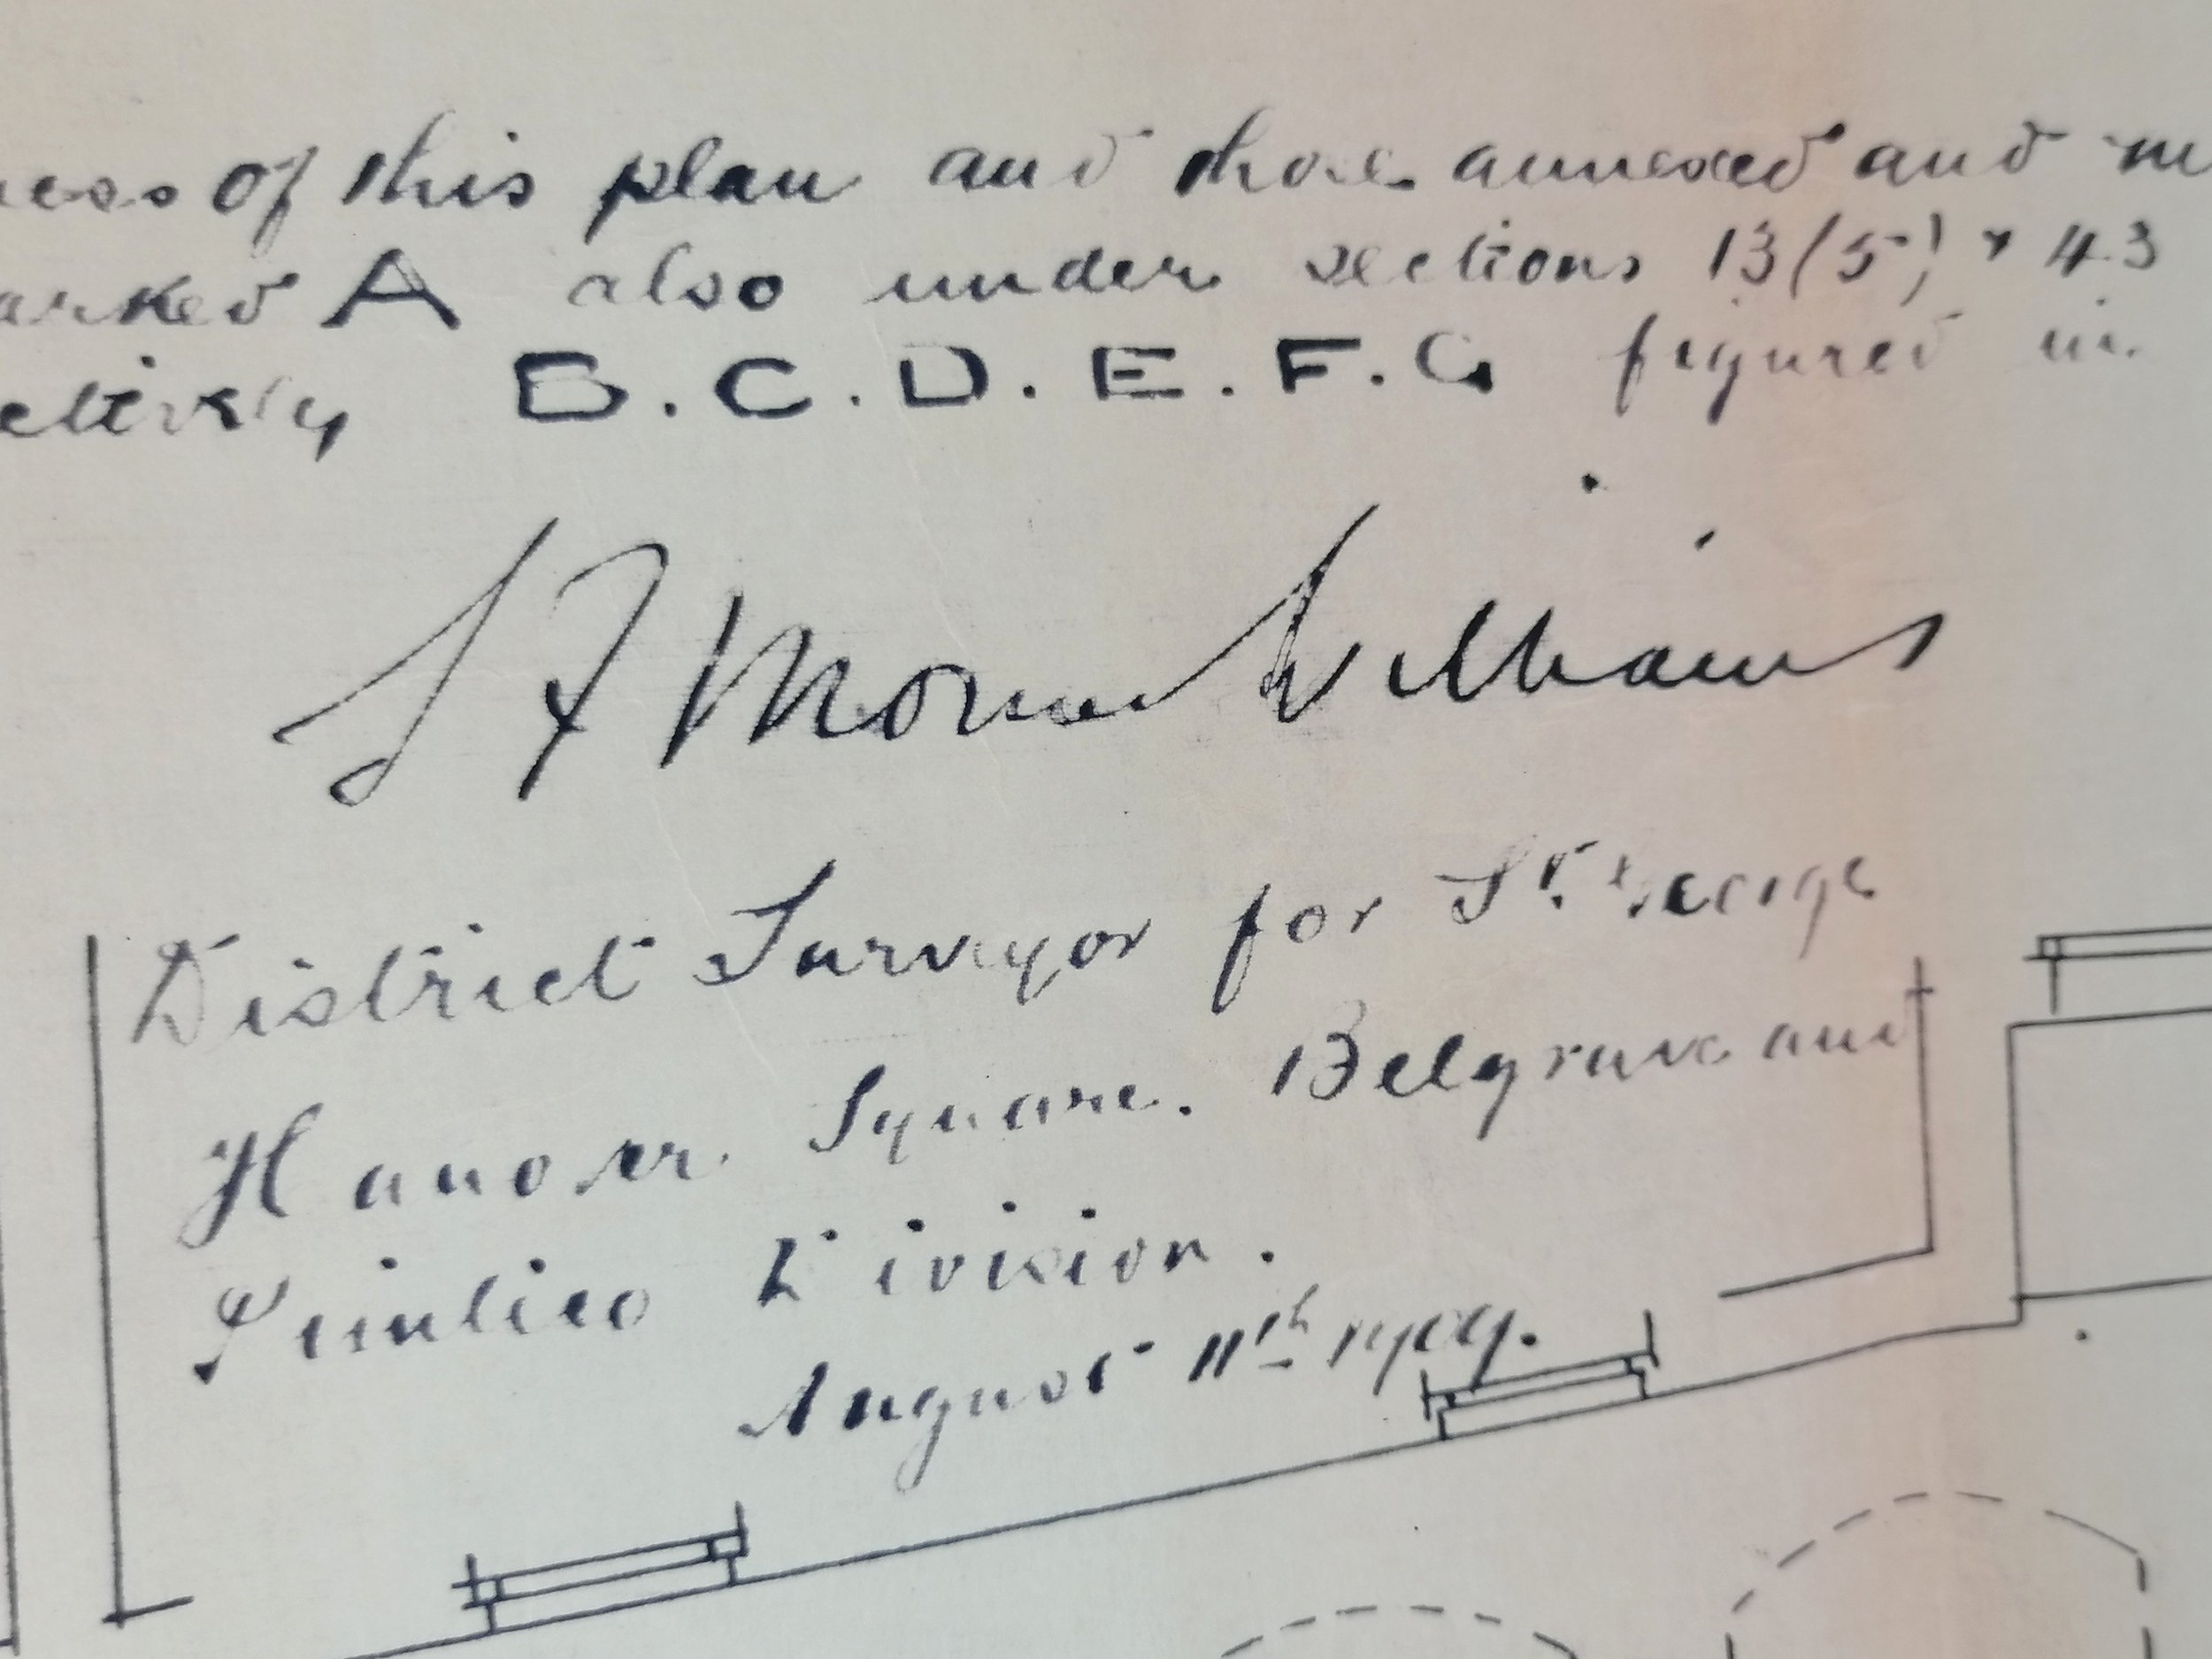 ness of this plan and those annexed and m
arked A also under sections 13(5) & 43
ectively B. C. D. E. F. G figured in
Williams
District Surveyor for St. George
Hanover Square. Belgrave and
Pimlico Division.
August 11th 1909.